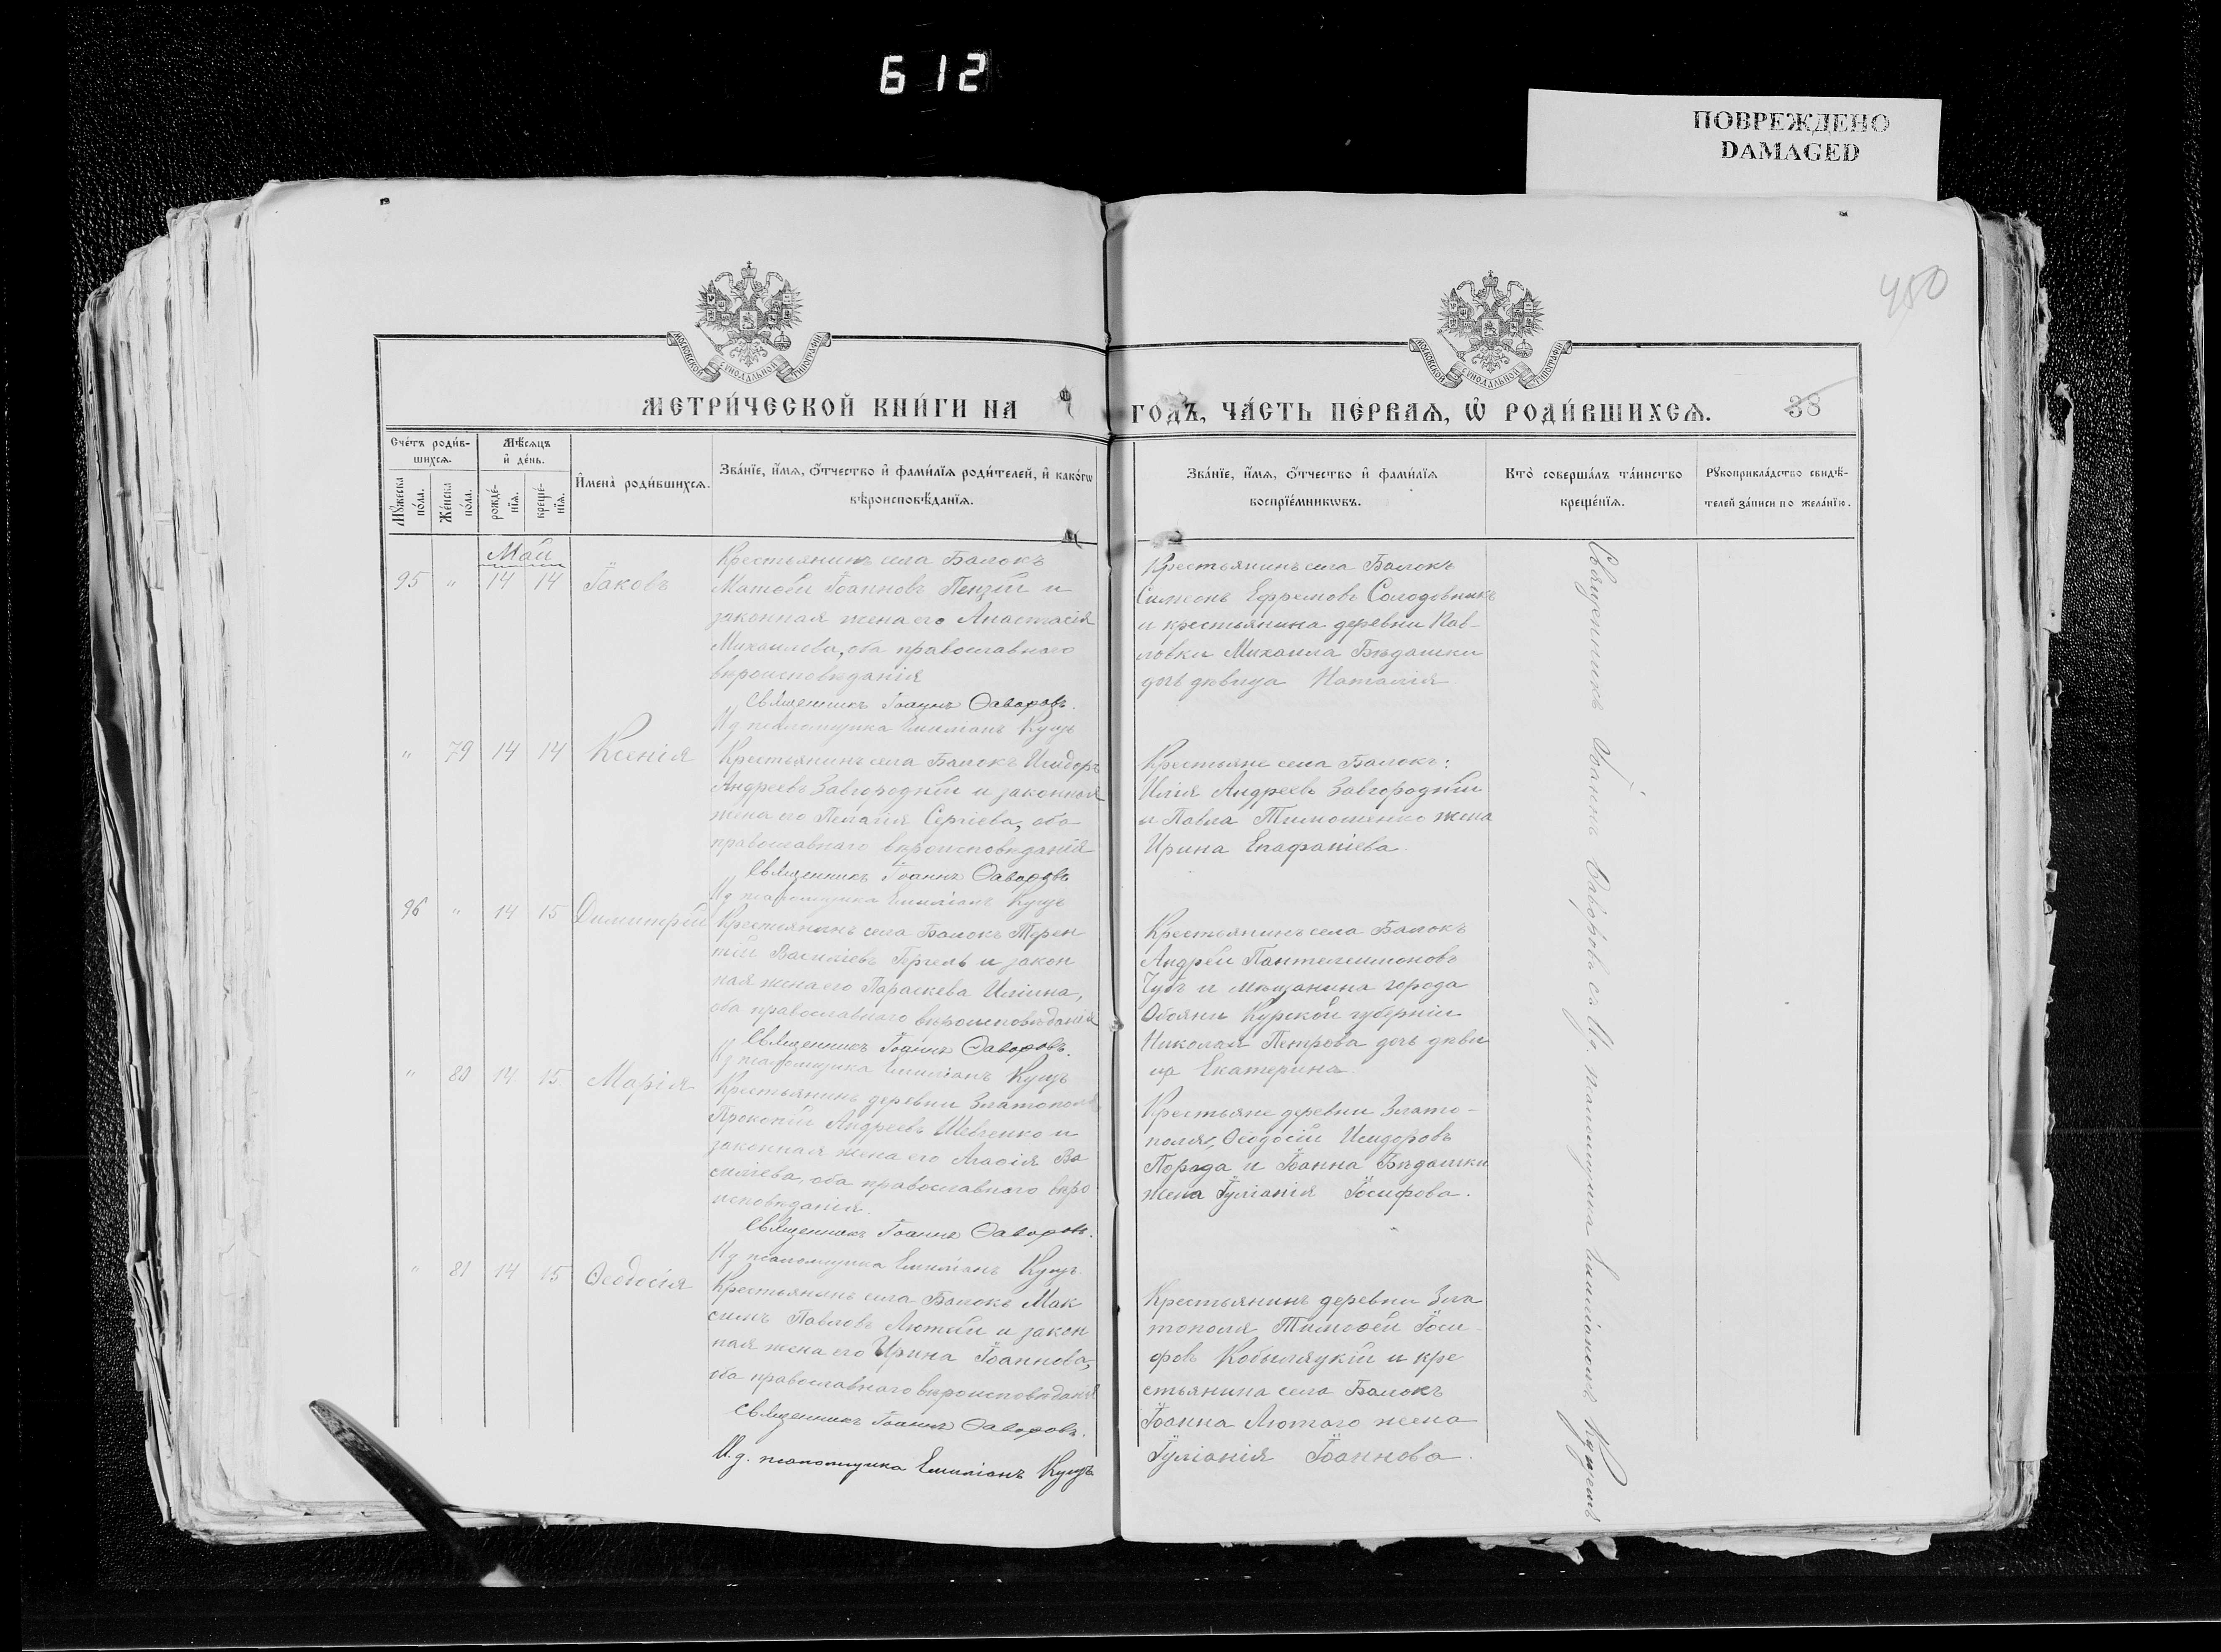 612
ПОВРЕЖДЕНО
DAMAGED
450
МОСКОВСКОЙ СѴНОДАЛЬНОЙ ТИПОГРАФІИ
МОСКОВСКОЙ СѴНОДАЛЬНОЙ ТИПОГРАФІИ
МЕТРИ́ЧЕСКОЙ КНИ́ГИ НА
ГОДЪ, ЧА́СТЬ ПЕ́РВАѦ, Ѡ РОДИ́ВШИХСѦ.
38
Сче́тъ роди́в-
шихсѧ.
Мꙋ́жеска
по́ла.
Же́нска
по́ла.
Мѣ́сѧцъ
и де́нь.
рожде́-
нїѧ.
креще́-
нїѧ.
Имена̀ роди́вшихсѧ.
Зва́нїе, и́мѧ, ѻ́тчество и фами́лїѧ роди́телей, и како́гѡ
вѣроисповѣ́данїѧ.
Зва́нїе, и́мѧ, ѻ́тчество и фами́лїѧ
воспрїе́мникѡвъ.
Кто̀ соверша́лъ та́инство
креще́нїѧ.
Рꙋкоприкла́дство свидѣ́-
телей за́писи по жела́нїю.
Май
95 " 14 14 Іаковъ
Крестьянинъ села Балокъ
Матѳей Іоанновъ Пензій и
законная жена его Анастасія
Михаилова, оба православнаго
вѣроисповѣданія
Священникъ Іоаннъ Ѳаворовъ.
И д псаломщика Емиліанъ Кущъ
Крестьянинъ села Балокъ
Симеонъ Ефремовъ Солодовникъ
и крестьянина деревни Пав-
ловки Михаила Бѣдашки
дочь дѣвица Наталія
" 79 14 14 Ксенія
Крестьянинъ села Балокъ Исидоръ
Андреевъ Завгородній и законная
жена его Пелагія Сергіева, оба
православнаго вѣроисповѣданія
Священникъ Іоаннъ Ѳаворовъ
И д псаломщика Емиліанъ Кущъ
Крестьяне села Балокъ:
Илія Андреевъ Завгородній
и Павла Тимошенко жена
Ирина Епифаніева.
96 " 14 15 Димитрій
Крестьянинъ села Балокъ Терен
тій Василіевъ Гергель и закон
ная жена его Параскева Иліина,
оба православнаго вѣроисповѣданія
Священникъ Іоаннъ Ѳаворовъ.
И д псаломщика Емиліанъ Кущъ
Крестьянинъ села Балокъ
Андрей Пантелеимоновъ
Чубъ и мѣщанина города
Обояни Курской губерніи
Николая Петрова дочь дѣви
ца Екатерина.
" 80 14 15 Марія
Крестьянинъ деревни Златополя
Прокопій Андреевъ Шевченко и
законная жена его Агаѳія Ва
силіева, оба православнаго вѣро
исповѣданія.
Священникъ Іоаннъ Ѳаворовъ.
И д псаломщика Емиліанъ Кущъ
Крестьяне деревни Злато-
поля, Ѳеодосій Исидоровъ
Порада и Іоанна Бѣдашки
жена Іуліанія Іосифова.
" 81 14 15 Ѳеодосія
Крестьянинъ села Балокъ Мак
симъ Павловъ Лютый и закон
ная жена его Ирина Іоаннова,
оба православнаго вѣроисповѣданія
Священникъ Іоаннъ Ѳаворовъ.
И. д. псаломщика Емиліанъ Кущъ
Крестьянинъ деревни Зла
тополя Тимоѳей Іоси-
фовъ Кобыляцкій и кре
стьянина села Балокъ
Іоанна Лютаго жена
Іуліанія Іоаннова.
Священникъ Іоаннъ Ѳаворовъ съ И д. псаломщика Емиліаномъ Кущемъ